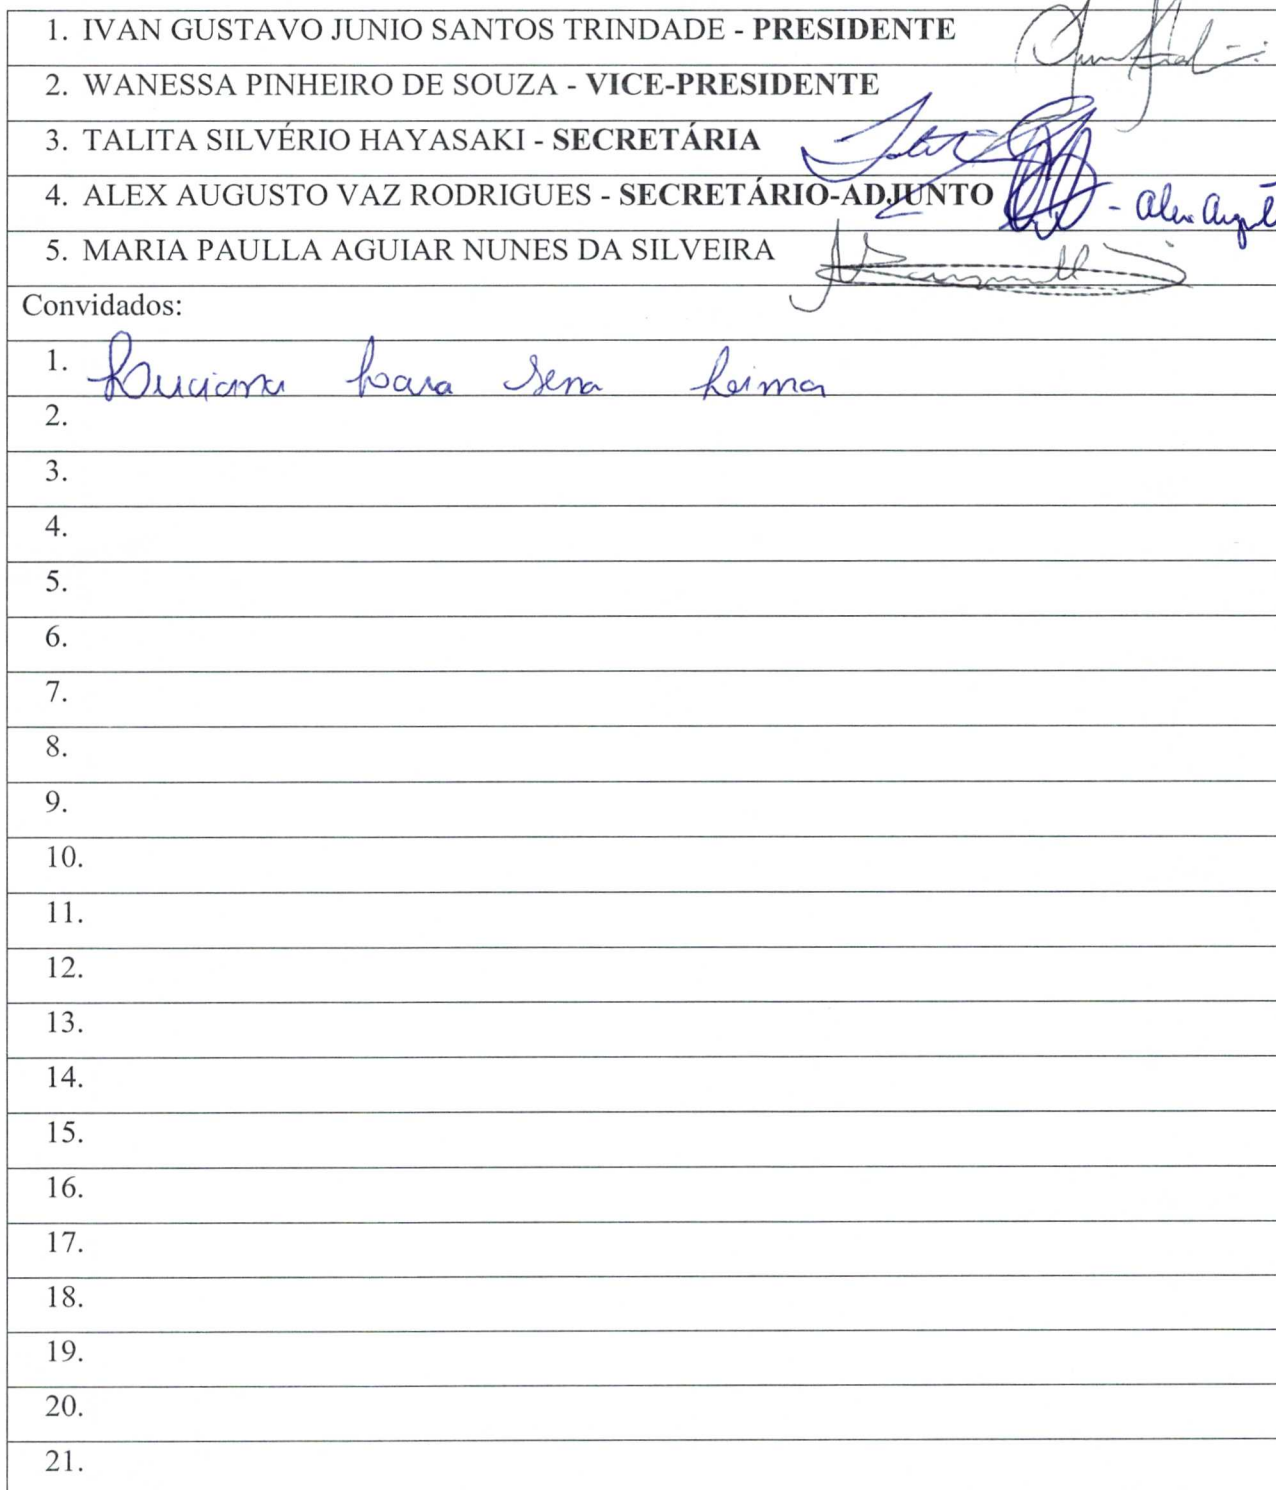 1. IVAN GUSTAVO JUNIO SANTOS TRINDADE - PRESIDENTE
2. WANESSA PINHEIRO DE SOUZA - VICE-PRESIDENTE
3. TALITA SILVÉRIO HAYASAKI - SECRETÁRIA
4. ALEX AUGUSTO VAZ RODRIGUES - SECRETÁRIO-ADJUNTO - Alex
5. MARIA PAULLA AGUIAR NUNES DA SILVEIRA
Convidados:
1. Luciana Lara Sena Leima
2.
3.
4.
5.
6.
7.
8.
9.
10.
11.
12.
13.
14.
15.
16.
17.
18.
19.
20.
21.